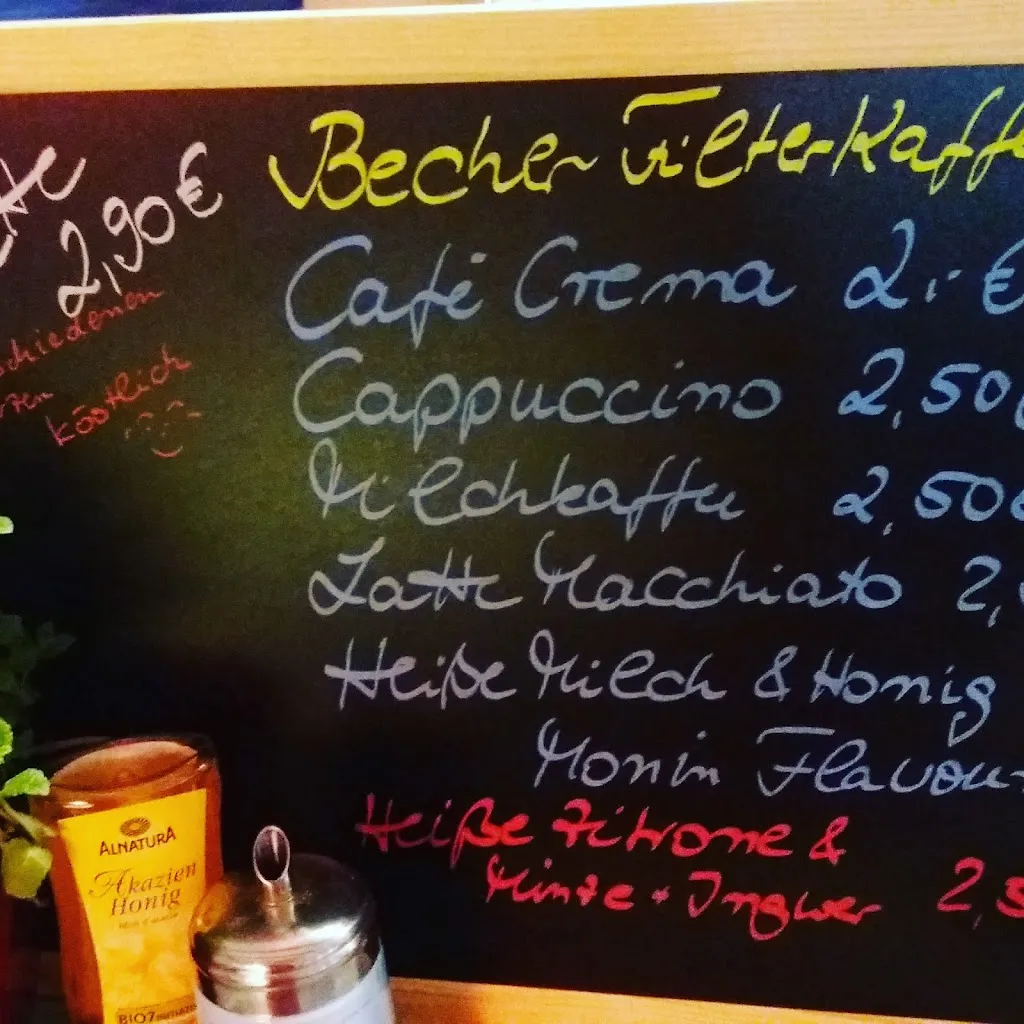 2,90€
köstlich
Becher Filterkaffe
Café Crema 2,- €
Cappuccino 2,50
Milchkaffee 2,50
Latte Macchiato 2,
Heiße Milch & Honig
Monin Flavour
Heiße Zitrone &
Minze + Ingwer 2,5
ALNATURA
Akazien
Honig
BIO7